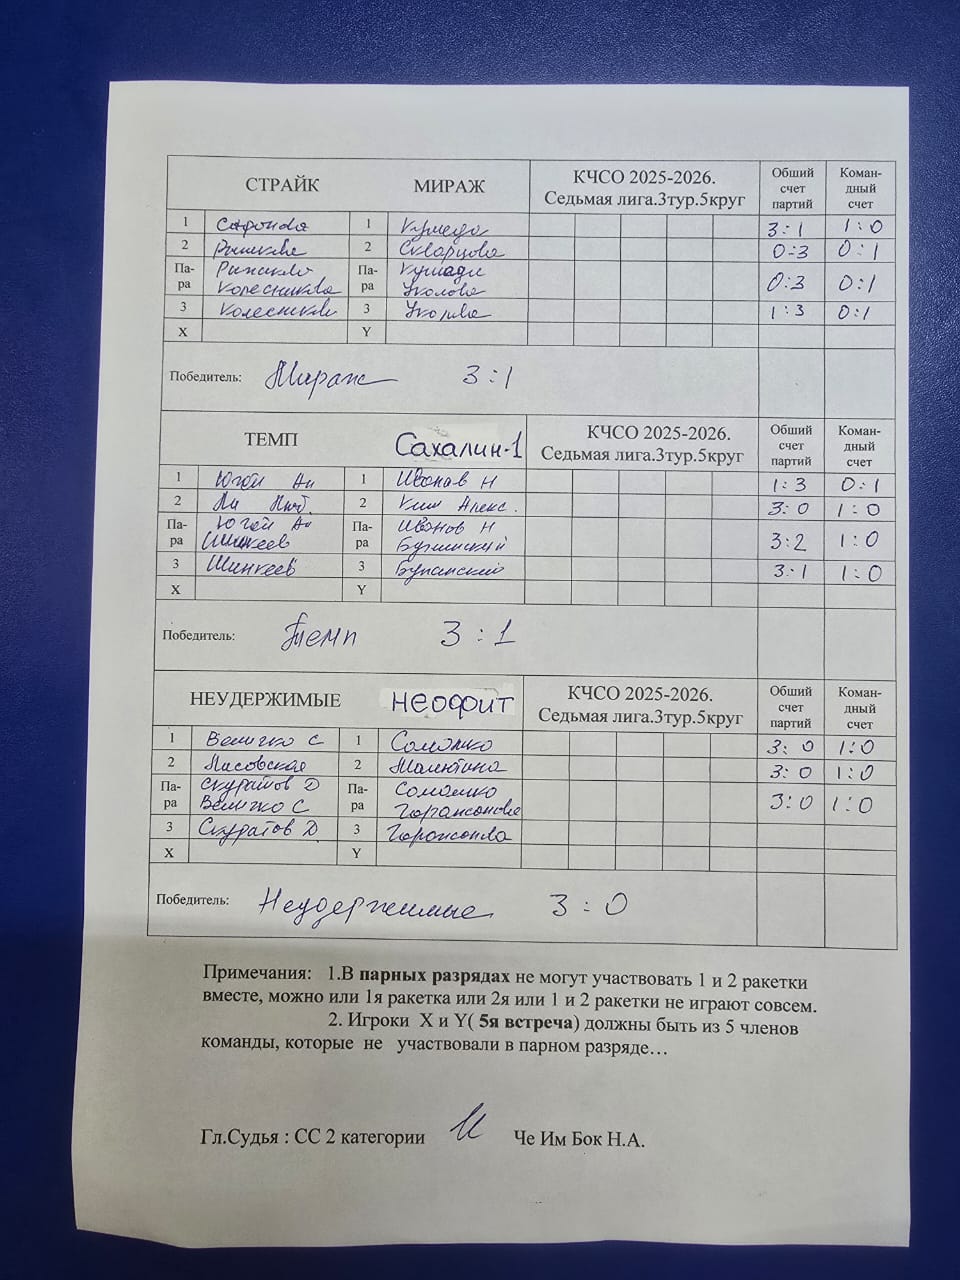 СТРАЙК МИРАЖ КЧСО 2025-2026. Седьмая лига.3тур.5круг Общий счет партий Коман-дный счет
1 Сафонова 1 3:1 1:0
2 Рыжкова 2 Скварцова 0:3 0:1
Па-ра Рыжкова Па-ра
Колесникова Уколова 0:3 0:1
3 Колесникова 3 Уколова 1:3 0:1
X Y
Победитель: Мираж 3:1
ТЕМП Сахалин-1 КЧСО 2025-2026. Седьмая лига.3тур.5круг Общий счет партий Коман-дный счет
1 Югай Ан 1 Иванов Н 1:3 0:1
2 Ли 2 Ким Алекс. 3:0 1:0
Па-ра Югай Ан Па-ра Иванов Н
Шинкеев 3:2 1:0
3 Шинкеев 3 3:1 1:0
X Y
Победитель: Темп 3:1
НЕУДЕРЖИМЫЕ НЕОФИТ КЧСО 2025-2026. Седьмая лига.3тур.5круг Общий счет партий Коман-дный счет
1 Величко С 1 Соломко 3:0 1:0
2 Лисовская 2 Малютина 3:0 1:0
Па-ра Скуратов Д Па-ра Соломко
Величко С 3:0 1:0
3 Скуратов Д 3
X Y
Победитель: Неудержимые 3:0
Примечания: 1.В парных разрядах не могут участвовать 1 и 2 ракетки
вместе, можно или 1я ракетка или 2я или 1 и 2 ракетки не играют совсем.
2. Игроки X и Y( 5я встреча) должны быть из 5 членов
команды, которые не участвовали в парном разряде…
Гл.Судья : СС 2 категории Че Им Бок Н.А.